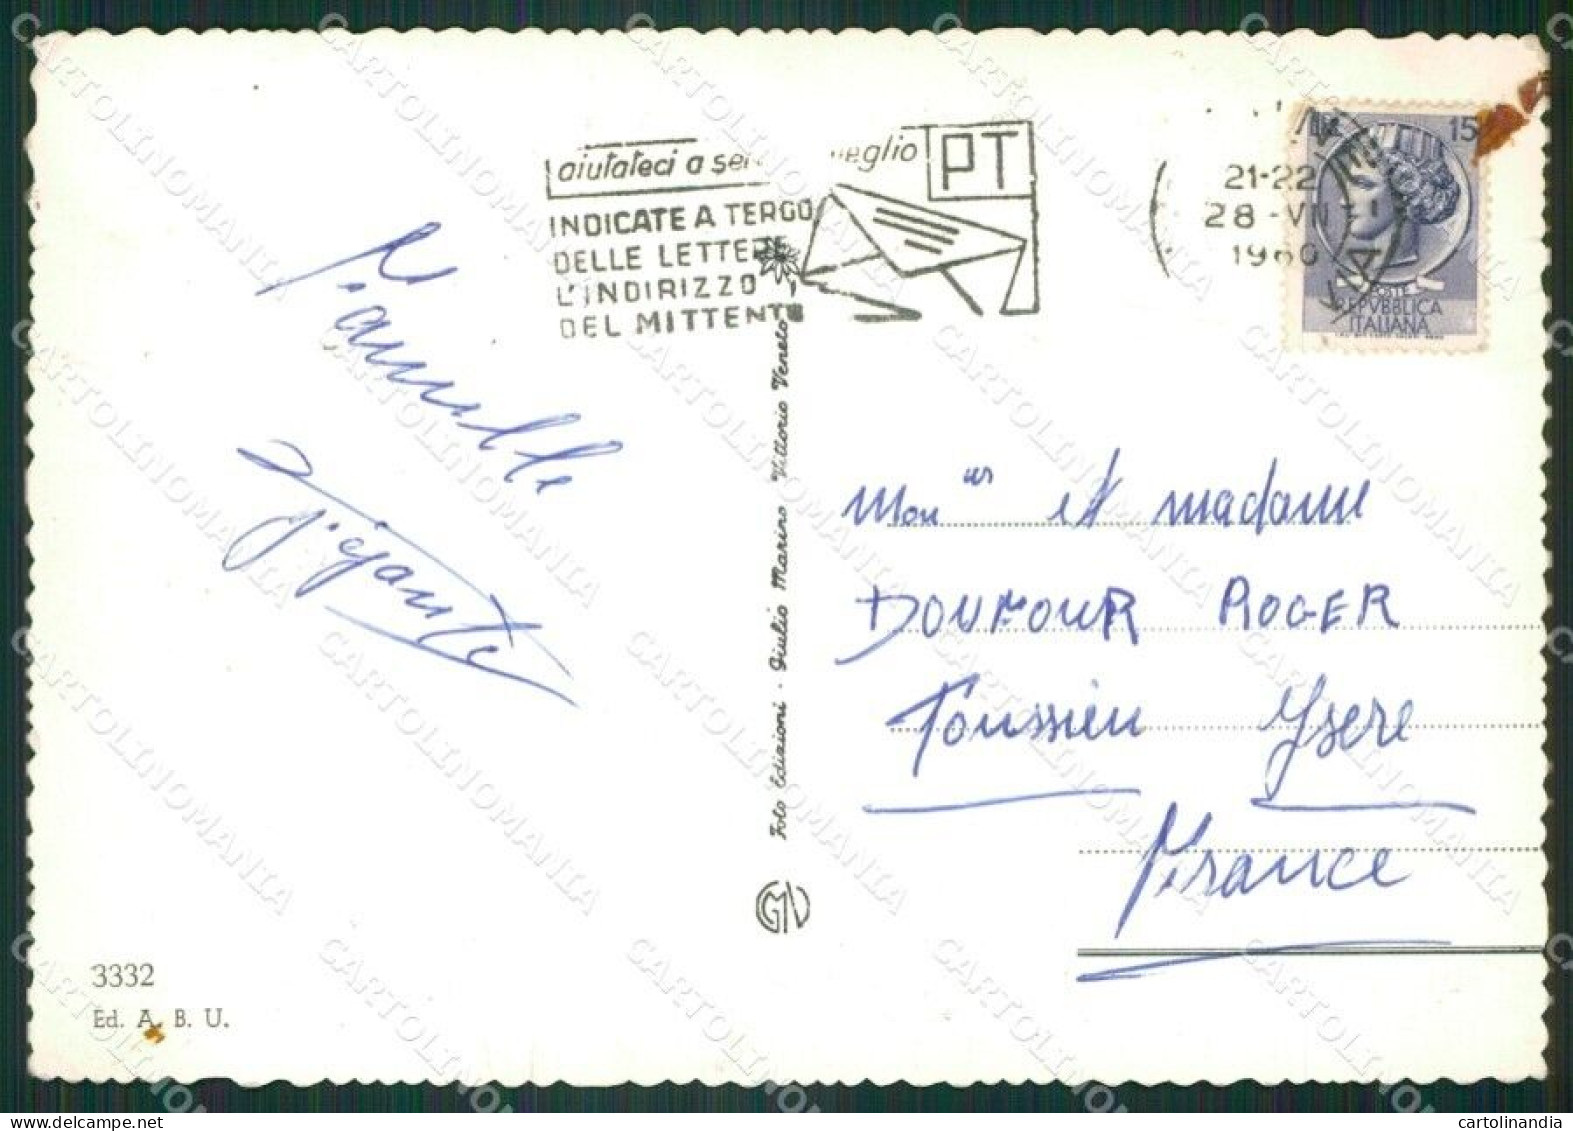 aiutateci a se eglio PT
INDICATE A TERGO
DELLE LETTERE
L'INDIRIZZO
DEL MITTENTE
21-22
28-VII
1960
L. 15
POSTE
REPVBBLICA
ITALIANA
Famille
Gigante
Foto Edizioni - Giulio Marino Vittorio Veneto
GMV
Monsieur et madame
DOUFOUR ROGER
Toussieu Ysere
France
3332
Ed. A. B. U.
CARTOLINOMANIA
cartolinandia